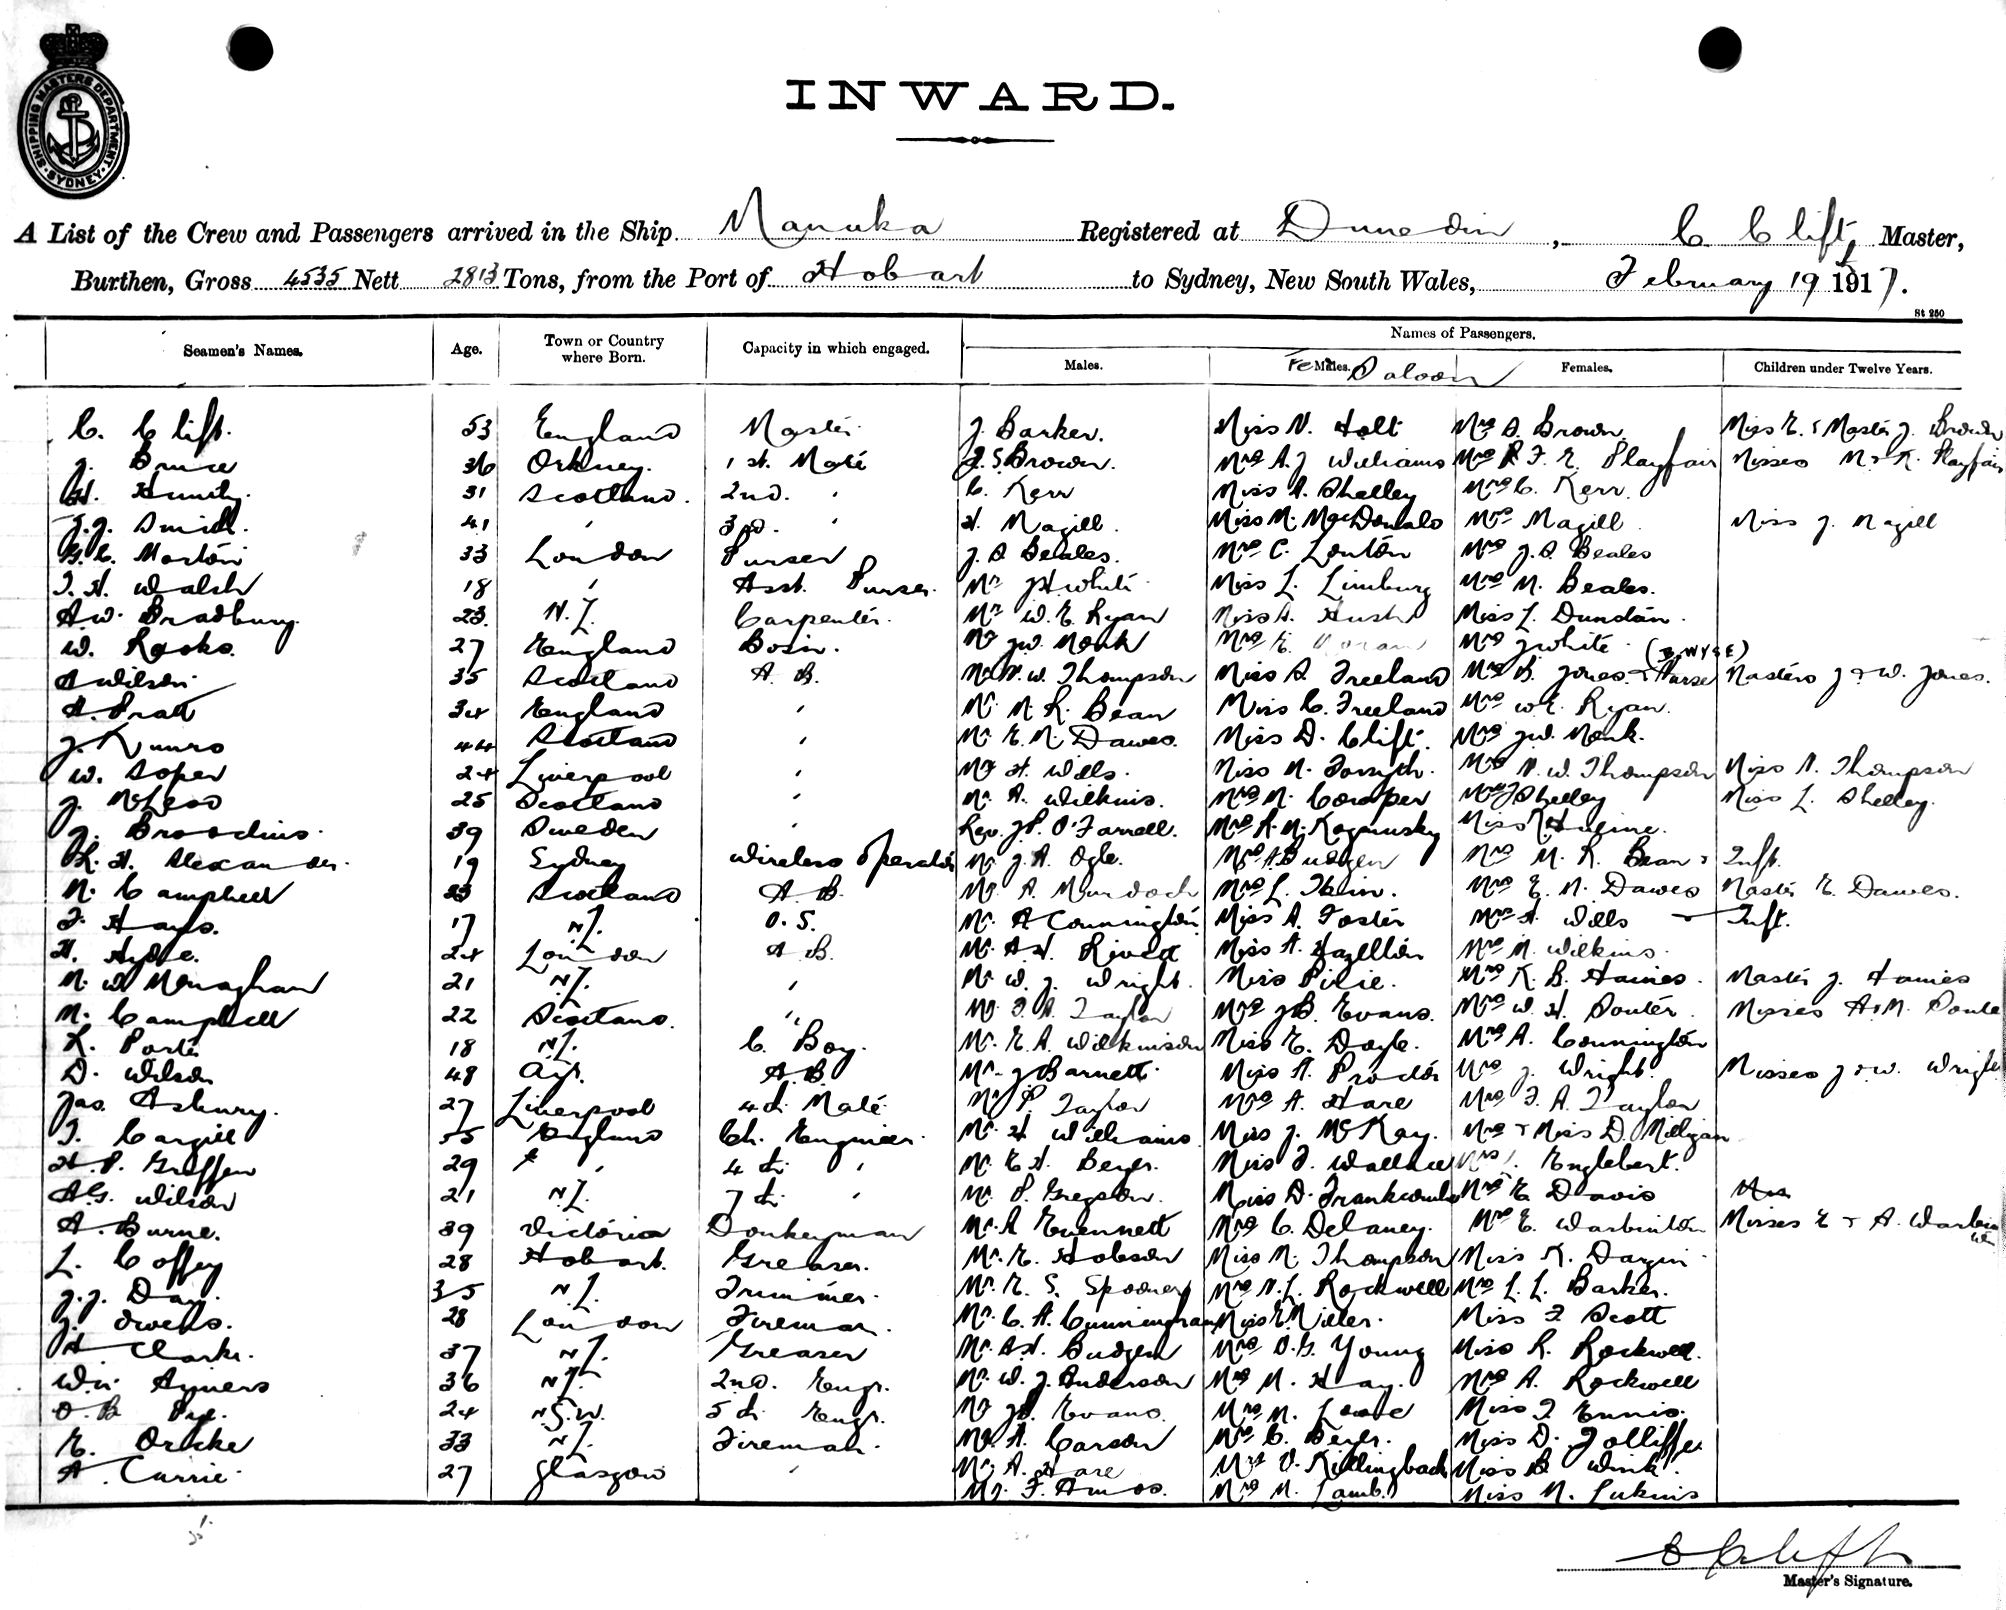 SHIPPING MASTERS DEPARTMENT SYDNEY
INWARD.
A List of the Crew and Passengers arrived in the Ship Manuka Registered at Dunedin, C Clift, Master,
Burthen, Gross 4535 Nett 2813 Tons, from the Port of Hobart to Sydney, New South Wales, February 19 1917.
St 250
Seamen's Names. Age. Town or Country where Born. Capacity in which engaged. Names of Passengers.
Males. Fe Males. Saloon Females. Children under Twelve Years.
C. Clift. 53 England Master J. Barker. Miss N. Holt Mrs S. Brown Miss E. & Master J. Brown
J. Bruce 36 Orkney. 1st. Mate J. S. Brown. Mrs A. J Williams Mrs F. E. Playfair Misses M & K. Playfair
H. 31 Scotland. 2nd. " C. Kerr Miss A. Shelley Mrs C. Kerr.
J. J. Smith. 41 " 3rd. " H. Magill. Miss M. MacDonald Mrs Magill Miss J. Magill
G. C. Morton 33 London Purser J. S Beales. Mrs C. Louton Mrs J. S Beales
T. H. Walsh 18 " Asst. Purser. Mr J H White Miss L. Limburg Mrs M. Beales.
A. W. Bradbury. 23. N.Z. Carpenter. Mr W. E. Ryan Miss A. Hush Miss L. Dundon.
W. Rooks. 27 England Bosin. Mr J W. Monk Mrs E. Moran Mrs J White (B. WYSE)
A Wilson. 35 Scotland A. B. Mr N. W. Thompson Miss S. Freeland Mrs B. Jones. & Nurse Masters J & W. Jones.
A. Pratt 34 England " Mr. M. R. Bean Miss C. Freeland Mrs W. E. Ryan.
J. Munro 44 Scotland " Mr. E. M. Dawes. Miss D. Clift. Mrs J W. Monk.
W. Soper 24 Liverpool " Mr H. Wills. Miss M. Forsyth. Mrs N. W. Thompson Miss N. Thompson
J. McLeod 25 Scotland " Mr. A. Wilkins. Mrs M. Cowper Mrs J Shelley Miss L. Shelley.
J. Brodins. 39 Sweden " Rev. J P. O'Farrell. Mrs R. M. Kozminsky Miss
R. H. Alexander. 19 Sydney Wireless Operator Mr J. A. Ogle. Mrs A Budgen Mrs M. R. Bean & Inft.
N. Campbell 23 Scotland A. B. Mr. A. Murdoch Mrs L. Mrs E. M. Dawes Master E. Dawes.
F. Hays. 17 N.Z. O. S. Mr. A Connington Miss A. Foster Mrs H. Wills Inft.
H. Hyde. 24 London A B. Mr. A H. Rivett Miss A. Hazelton Mrs M. Wilkins.
M. W Monaghan 21 N.Z. " Mr W. J. Wright. Miss Pirie. Mrs K. B. Haines. Master J. Haines
N. Campbell 22 Scotland. " Mr. F. A. Taylor Mrs J B. Evans. Mrs W. H. Souter. Misses A & M. Souter
R. Porter 18 N.Z. C. Boy. Mr. E. A. Wilkinson Miss E. Doyle. Mrs A. Connington
D. Wilson 48 Ayr. A. B. Mr. J Barnett. Miss A. Proctor Mrs J. Wright. Misses J & W. Wright
Jas. Asbury. 27 Liverpool 4th Mate Mr P. Taylor Mrs A. Hare Mrs F. A. Taylor
T. Cargill 55 England Ch. Engineer. Mr H Williams Miss J. McKay. Mrs & Miss D. Milligan
H. P. Griffen 29 " 4th " Mr. E H. Beyer. Miss F. Wallace Mrs Englebert.
A. G. Wilson 21 N.Z. 7th " Mr. P. Gregson. Miss D. Frankcombe Mrs E Davis
A. Burne. 39 Victoria Donkeyman Mr. A Evennett Mrs C. Delaney. Mrs E. Warbinton Misses E & A. Warbinton
L. Coffey 28 Hobart. Greaser. Mr. E. Hobson Miss M. Thompson Miss K. Dargin
J. J. Day. 35 N.Z. Trimmer. Mr. E. S. Spooner Mrs N. L. Rockwell Mrs L. L. Barker.
J. Owens. 28 London Fireman. Mr. C. A. Cunningham Miss E. Miller. Miss F Scott
A Clarke. 37 N.Z. Greaser Mr. A H. Budgen Mrs O. G. Young Miss R. Rockwell.
Wm Aymers 36 N.Z. 2nd. Engr. Mr. W. J. Anderson Mrs M. Hay. Mrs A. Rockwell
O. B. Pye. 24 N.S.W. 5th Engr. Mr J B. Evans. Mrs M. Lowe Miss J Ennis.
E. 33 N.Z. Fireman. Mr A. Carson Mrs C. Beyer. Miss D. Jolliffe.
A. Currie. 27 Glasgow " Mr A. Hare Mrs V. Killingback Miss B Wink.
Mr. F. Amos. Mrs M. Lamb. Miss M. Lukins
C Clift
Master's Signature.